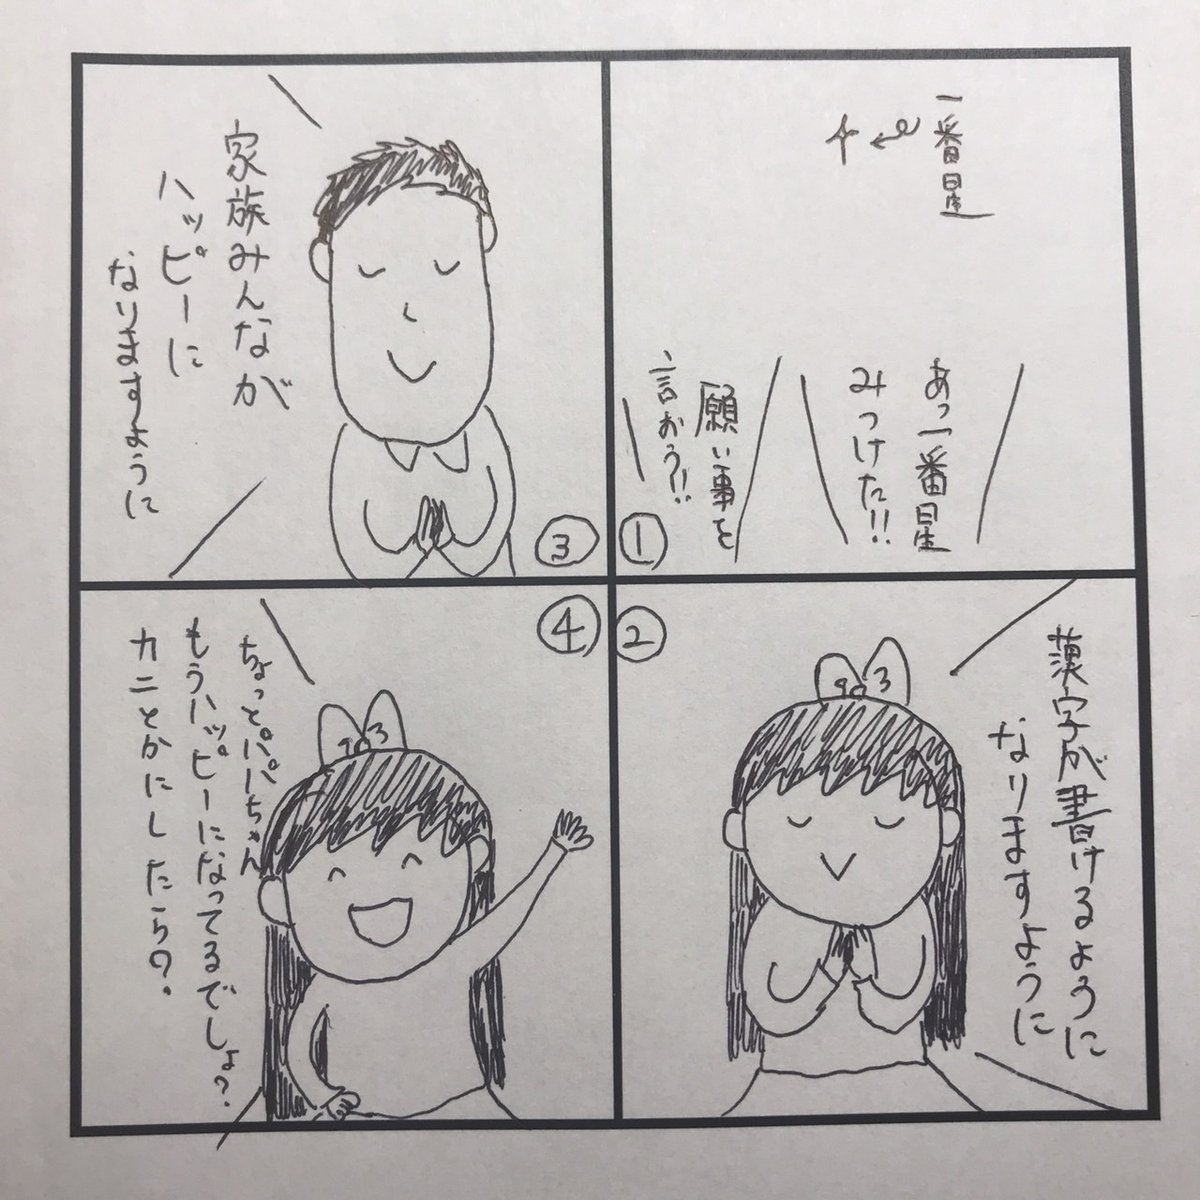 一番星
あっ一番星
みつけた!!
願い事を
言おう!!
①
②
漢字が書けるように
なりますように
③
家族みんなが
ハッピーに
なりますように
④
ちょっとパパちゃん
もうハッピーになってるでしょ?
カニとかにしたら?